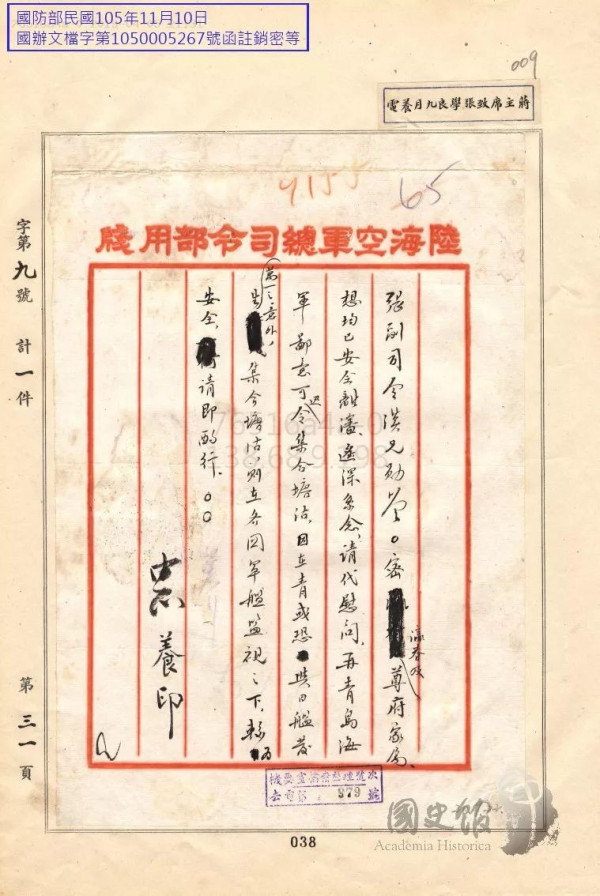 國防部民國105年11月10日
國辦文檔字第1050005267號函註銷密等
009
蔣主席致張學良九月養電
65
陸海空軍總司令部用牋
張副司令漢兄勛鑒。密 尊府家屬、
想均已安全離瀋、遙深系念、請代慰問、再青島海
軍鄙意可迅令集合塘沽、因在青或恐 與日艦發
生 萬一之意外、集合塘沽、則在各國軍艦監視之下、較為
安全、請即酌行。○○
中正養印
字第九號 計一件
第三一頁
979
038
國史館
Academia Historica